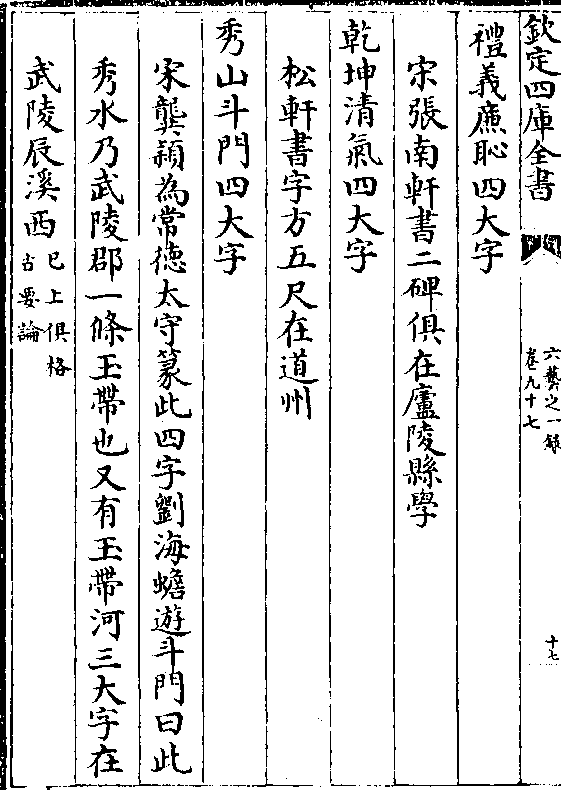 欽定四庫全書
六藝之一錄
卷九十七
十七
禮義廉恥四大字
宋張南軒書二碑俱在廬陵縣學
乾坤清氣四大字
松軒書字方五尺在道州
秀山斗門四大字
宋龔穎為常德太守篆此四字劉海蟾遊斗門曰此
秀水乃武陵郡一條玉帶也又有玉帶河三大字在
武陵辰溪西已上俱格
古要論